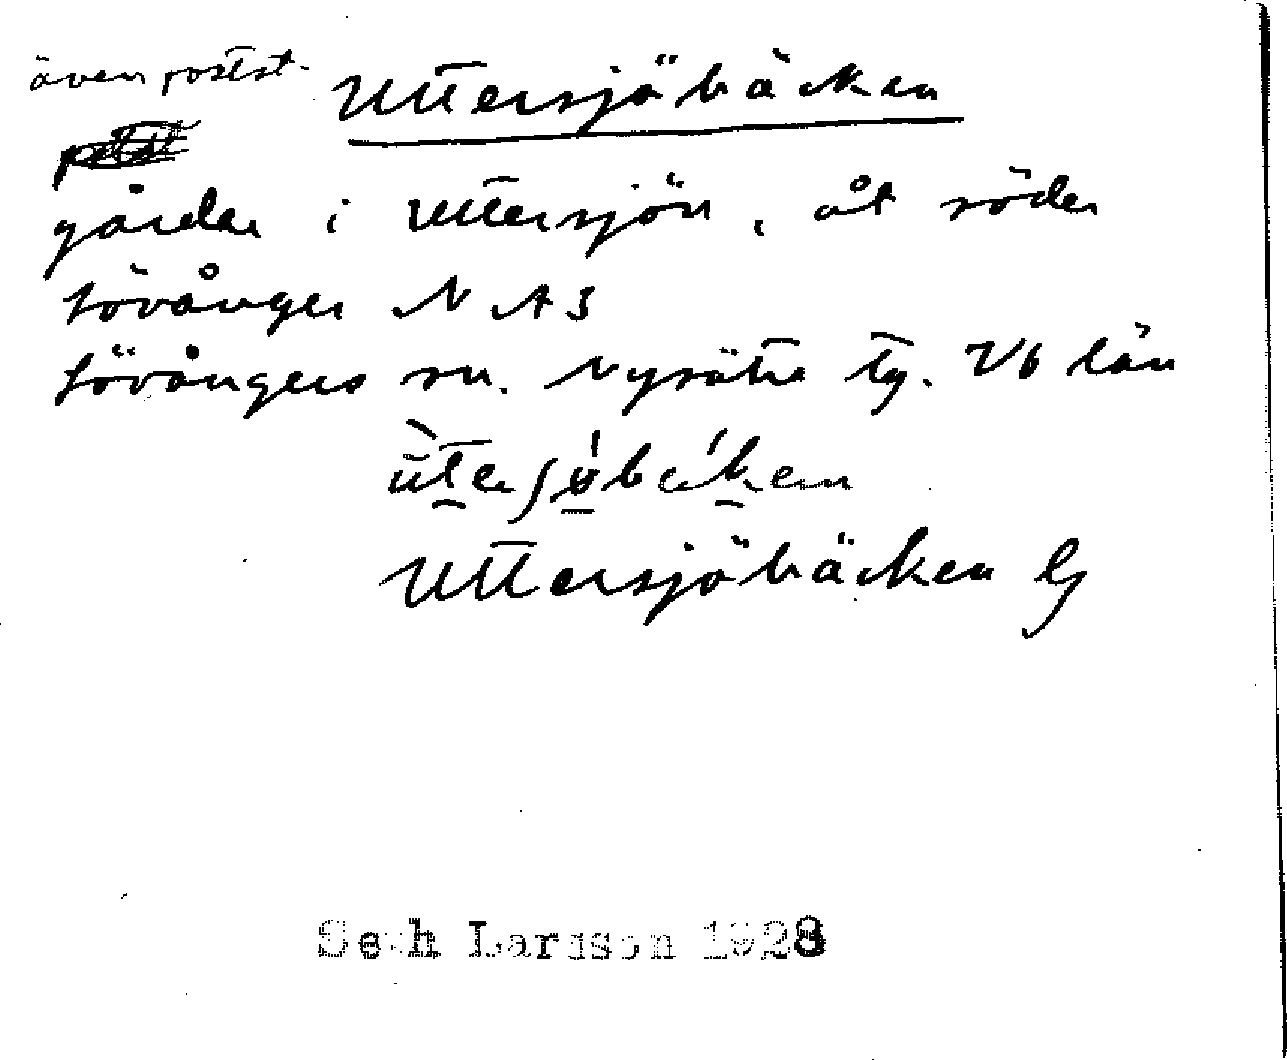 även postst.
Uttersjöbäcken
gårdar i Uttersjön, åt söder
Lövånger N A S
Lövångers sn. Nysätra tg. Vb län
Uttersjöbäcken G
Seth Larsson 1928